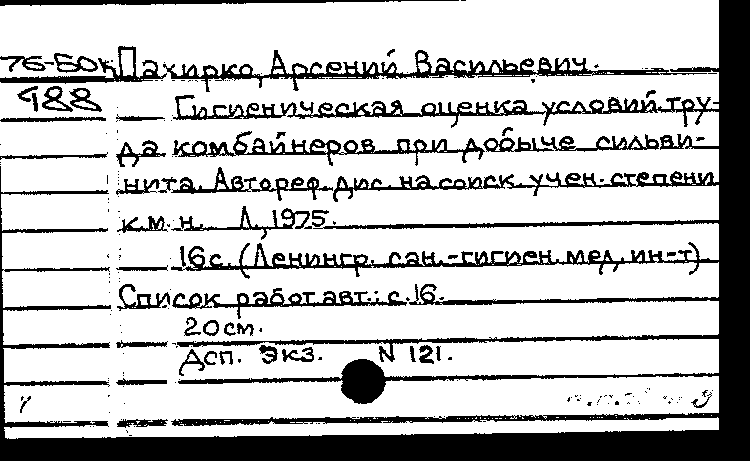 76-50к Пахирко, Арсений Васильевич.
988 Гигиеническая оценка условий тру-
да комбайнеров при добыче сильви-
нита. Автореф. дис. на соиск. учен. степени
к.м.н. Л., 1975.
16с. (Ленингр. сан.-гигиен. мед. ин-т).
Список работ авт.: с.16.
20см.
Дсп. Экз. N 121.